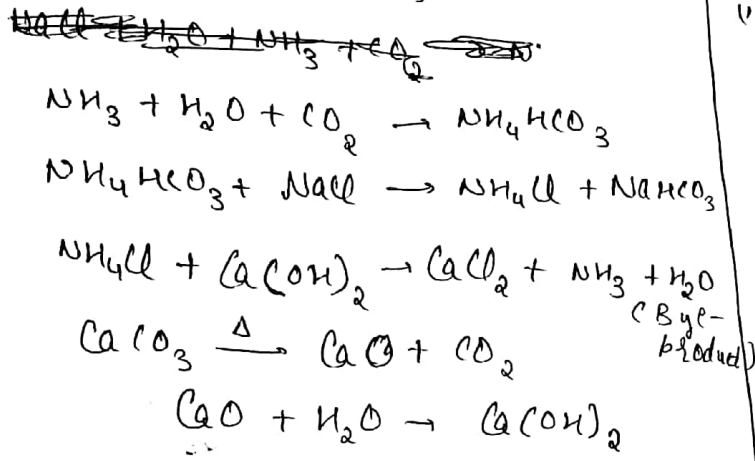 NaCl + H₂O + NH₃ + CO₂ → N
NH₃ + H₂O + CO₂ → NH₄HCO₃
NH₄HCO₃ + NaCl → NH₄Cl + NaHCO₃
NH₄Cl + Ca(OH)₂ → CaCl₂ + NH₃ + H₂O
(Bye-
product)
CaCO₃ —Δ→ CaO + CO₂
CaO + H₂O → Ca(OH)₂